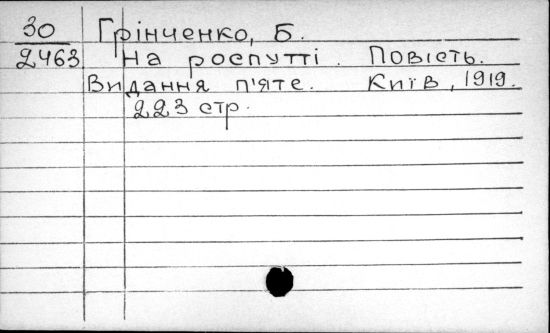 30 Грінченко, Б.
2463 На роспутті. Повість.
Видання п'яте. Київ, 1919.
223 стр.